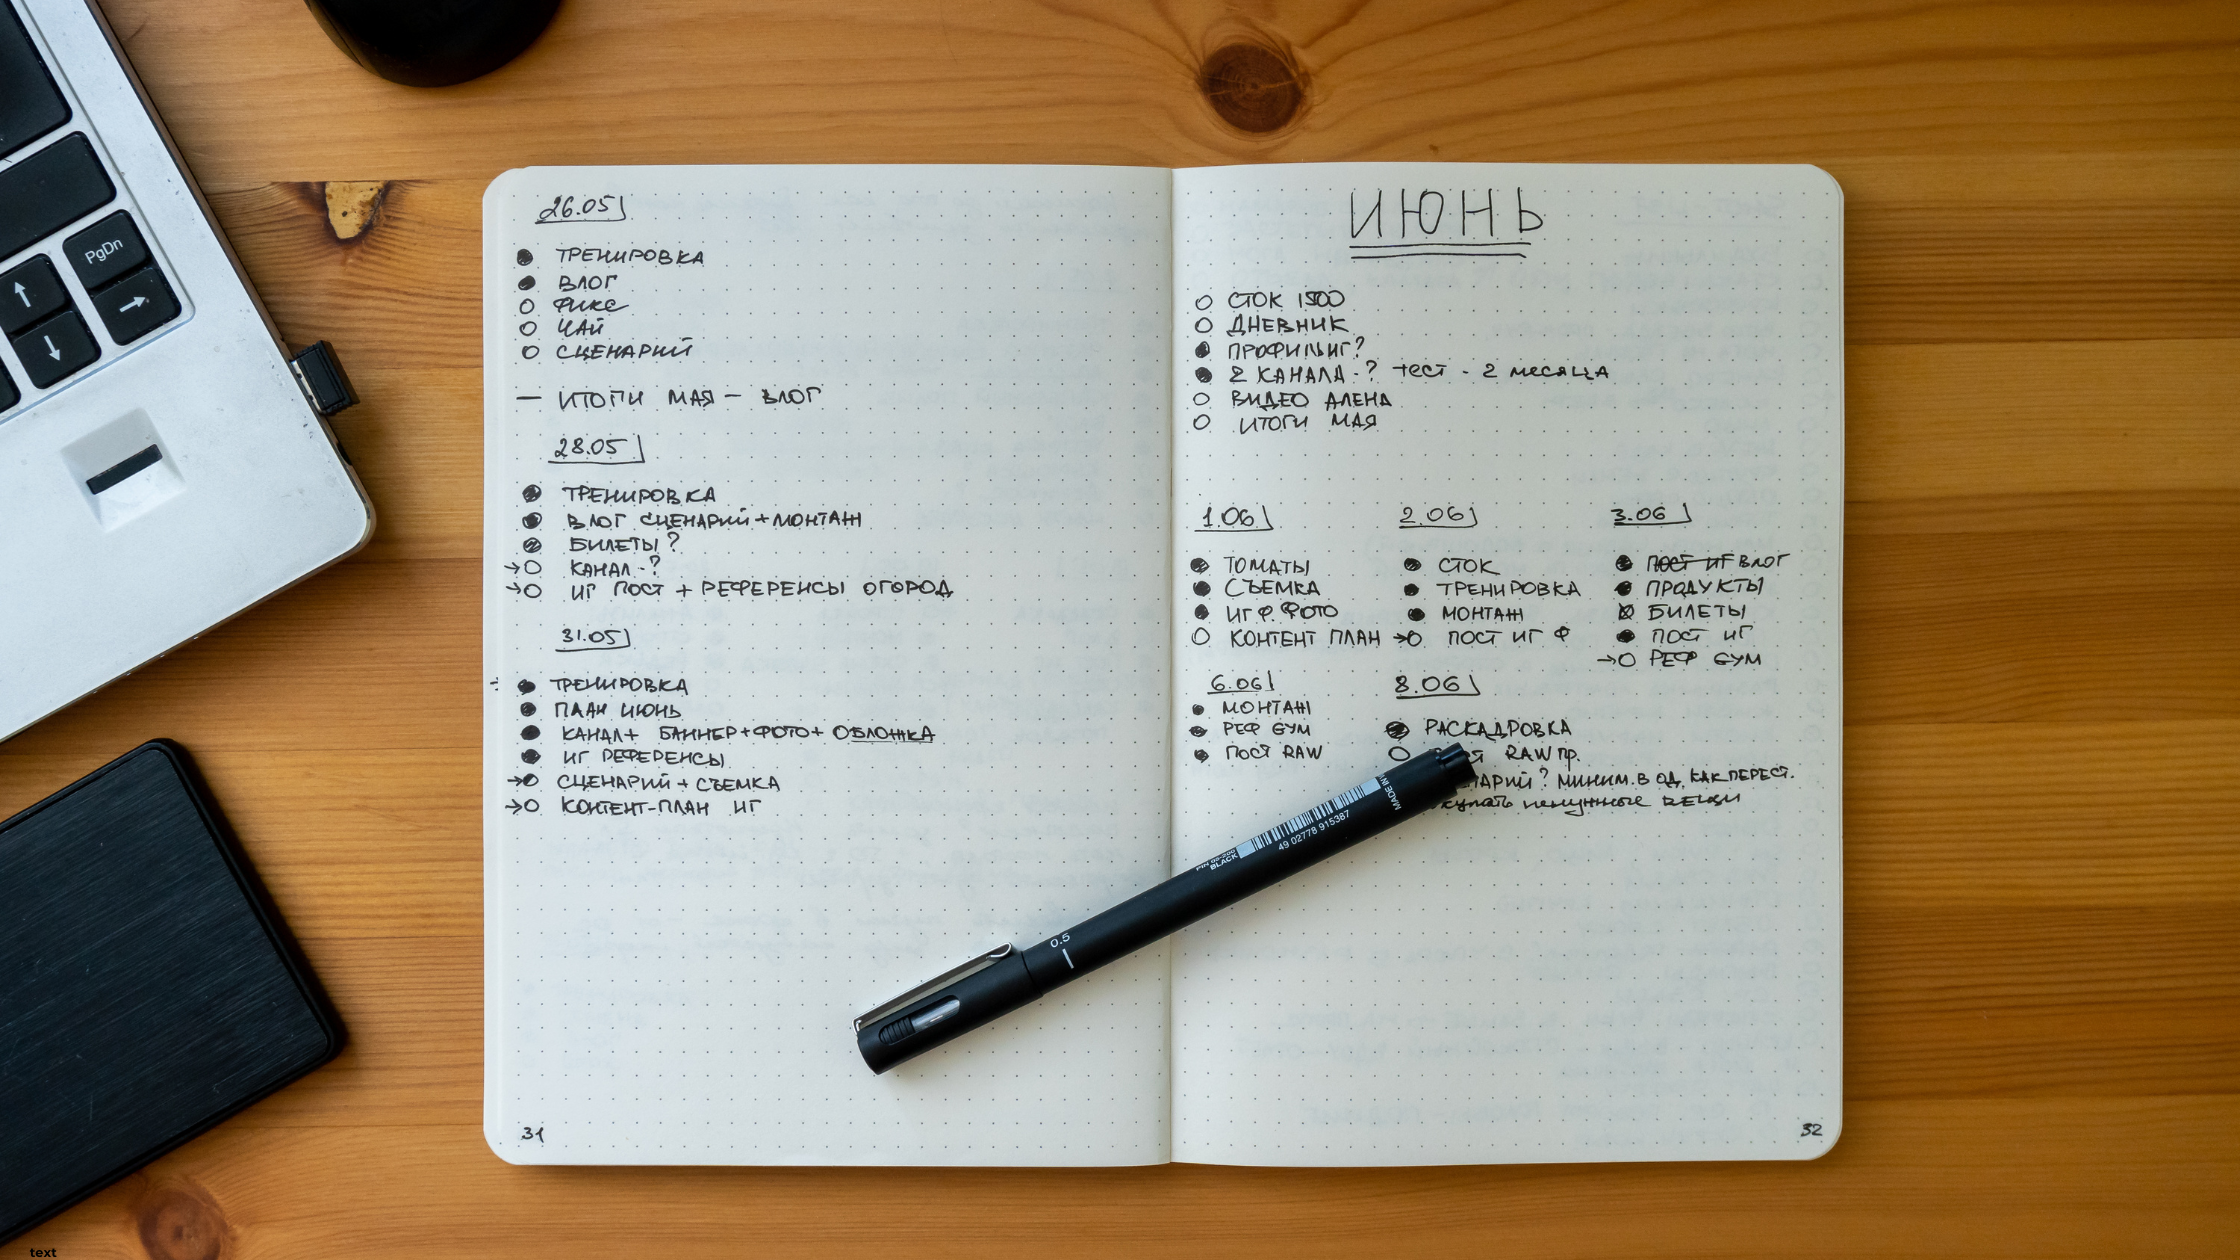 PgDn
26.05
ТРЕНИРОВКА
ВЛОГ
ФИКС
ЧАЙ
СЦЕНАРИЙ
— ИТОГИ МАЯ – ВЛОГ
28.05
ТРЕНИРОВКА
ВЛОГ СЦЕНАРИЙ + МОНТАЖ
БИЛЕТЫ?
→ КАНАЛ - ?
→ ИГ ПОСТ + РЕФЕРЕНСЫ ОГОРОД
31.05
ТРЕНИРОВКА
ПЛАН ИЮНЬ
КАНАЛ + БАННЕР + ФОТО + ОБЛОЖКА
ИГ РЕФЕРЕНСЫ
→ СЦЕНАРИЙ + СЪЕМКА
→ КОНТЕНТ-ПЛАН ИГ
31
ИЮНЬ
СТОК 1500
ДНЕВНИК
ПРОФИЛЬ ИГ?
2 КАНАЛА - ? ТЕСТ - 2 МЕСЯЦА
ВИДЕО АЛЕНА
ИТОГИ МАЯ
1.06
ТОМАТЫ
СЪЕМКА
ИГ Ф ФОТО
КОНТЕНТ ПЛАН
2.06
СТОК
ТРЕНИРОВКА
МОНТАЖ
→ ПОСТ ИГ Ф
3.06
ПОСТ ИГ ВЛОГ
ПРОДУКТЫ
БИЛЕТЫ
ПОСТ ИГ
→ РЕФ GYM
6.06
МОНТАЖ
РЕФ GYM
ПОСТ RAW
8.06
РАСКАДРОВКА
RAW пр.
? МИНИМ. В ОД. КАК ПЕРЕСТ.
ненужные вещи
32
MADE IN
49 02778 915387
BLACK
0.5
text